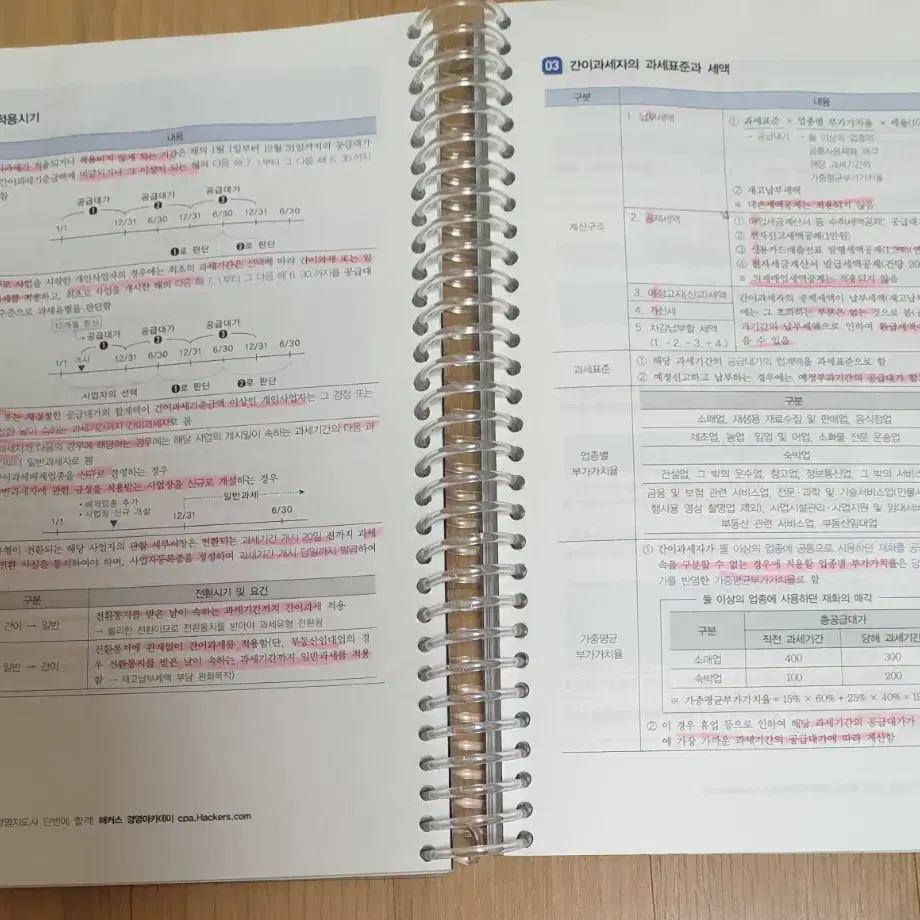 적용시기
내용
간이과세가 적용되거나 적용되지 않게 되는 기간은 해의 1월 1일부터 12월 31일까지의 공급대가
간이과세기준금액에 미달되거나 그 이상이 되는 해의 다음 해 7. 1.부터 그 다음 해 6. 30.까지
함
공급대가 공급대가 공급대가
❶ ❷ ❸
1/1 12/31 6/30 12/31 6/30 6/30
❶로 판단 ❷로 판단
사업을 시작한 개인사업자의 경우에는 최초의 과세기간은 선택에 따라 간이과세 또는 일
적용하고, 최초로 사업을 개시한 해의 다음 해 7. 1.부터 그 다음 해 6. 30.까지를 공급대
수준으로 과세유형을 판단함
12개월 환산
공급대가 공급대가 공급대가
❶ ❷ ❸
1/1 개시 12/31 6/30 12/31 6/30 6/30
사업자의 선택 ❶로 판단 ❷로 판단
또는 재경정한 공급대가의 합계액이 간이과세기준금액 이상인 개인사업자는 그 경정 또는
날이 속하는 과세기간까지 간이과세자로 봄
과세자가 다음의 경우에 해당하는 경우에는 해당 사업의 개시일이 속하는 과세기간의 다음 과
일반과세자로 봄
간이과세배제업종을 신규로 경영하는 경우
관한 규정을 적용받는 사업장을 신규로 개설하는 경우
• 배제업종 추가
• 사업장 신규 개설
일반과세
1/1 12/31 6/30
유형이 전환되는 해당 사업자의 관할 세무서장은 전환되는 과세기간 개시 20일 전까지 과세
전환 사실을 통지하여야 하며, 사업자등록증을 정정하여 과세기간 개시 당일까지 발급하여
구분 전환시기 및 요건
간이 → 일반 전환통지를 받은 날이 속하는 과세기간까지 간이과세 적용
→ 불리한 전환이므로 전환통지를 받아야 과세유형 전환됨
일반 → 간이 전환통지에 관계없이 간이과세를 적용함(단, 부동산임대업의 경
우 전환통지를 받은 날이 속하는 과세기간까지 일반과세를 적용
함 → 재고납부세액 부담 완화목적)
경영지도사 단번에 합격! 해커스 경영아카데미 cpa.Hackers.com
03 간이과세자의 과세표준과 세액
구분 내용
계산구조
1. 납부세액
① 과세표준 × 업종별 부가가치율 × 세율
→ 공급대가 → 둘 이상의 업종의
공통사용재화 매각
해당 과세기간의
가중평균부가가치율
② 재고납부세액
※ 대손세액공제는 적용되지 않음
2. 공제세액
① 매입세금계산서 등 수취세액공제: 공급대
② 전자신고세액공제(1만원)
③ 신용카드매출전표 발행세액공제
④ 전자세금계산서 발급세액공제(건당 200
※ 의제매입세액공제는 적용되지 않음
3. 예정고지(신고)세액
4. 가산세
5. 차감납부할 세액
(1. - 2. - 3. + 4.)
간이과세자의 공제세액이 납부세액(재고납부
에는 그 초과하는 부분은 없는 것으로 봄
과기간의 납부세액으로 인하여 환급세액
을 수 있음
과세표준
① 해당 과세기간의 공급대가의 합계액을 과세표준으로 함
② 예정신고하고 납부하는 경우에는 예정부과기간의 공급대가 합
업종별
부가가치율
구분
소매업, 재생용 재료수집 및 판매업, 음식점업
제조업, 농업·임업 및 어업, 소화물 전문 운송업
숙박업
건설업, 그 밖의 운수업, 창고업, 정보통신업, 그 밖의 서비스
금융 및 보험 관련 서비스업, 전문·과학 및 기술서비스업(인물
행사용 영상 촬영업 제외), 사업시설관리·사업지원 및 임대서비
부동산 관련 서비스업, 부동산임대업
가중평균
부가가치율
① 간이과세자가 둘 이상의 업종에 공통으로 사용하던 재화를 공급
속을 구분할 수 없는 경우에 적용할 업종별 부가가치율은
가를 반영한 가중평균부가가치율로 함
둘 이상의 업종에 사용하던 재화의 매각
구분 총공급대가
직전 과세기간 당해 과세기간
소매업 400 300
숙박업 100 200
※ 가중평균부가가치율 = 15% × 60% + 25% × 40% =
② 이 경우 휴업 등으로 인하여 해당 과세기간의 공급대가가
에 가장 가까운 과세기간의 공급대가에 따라 계산함